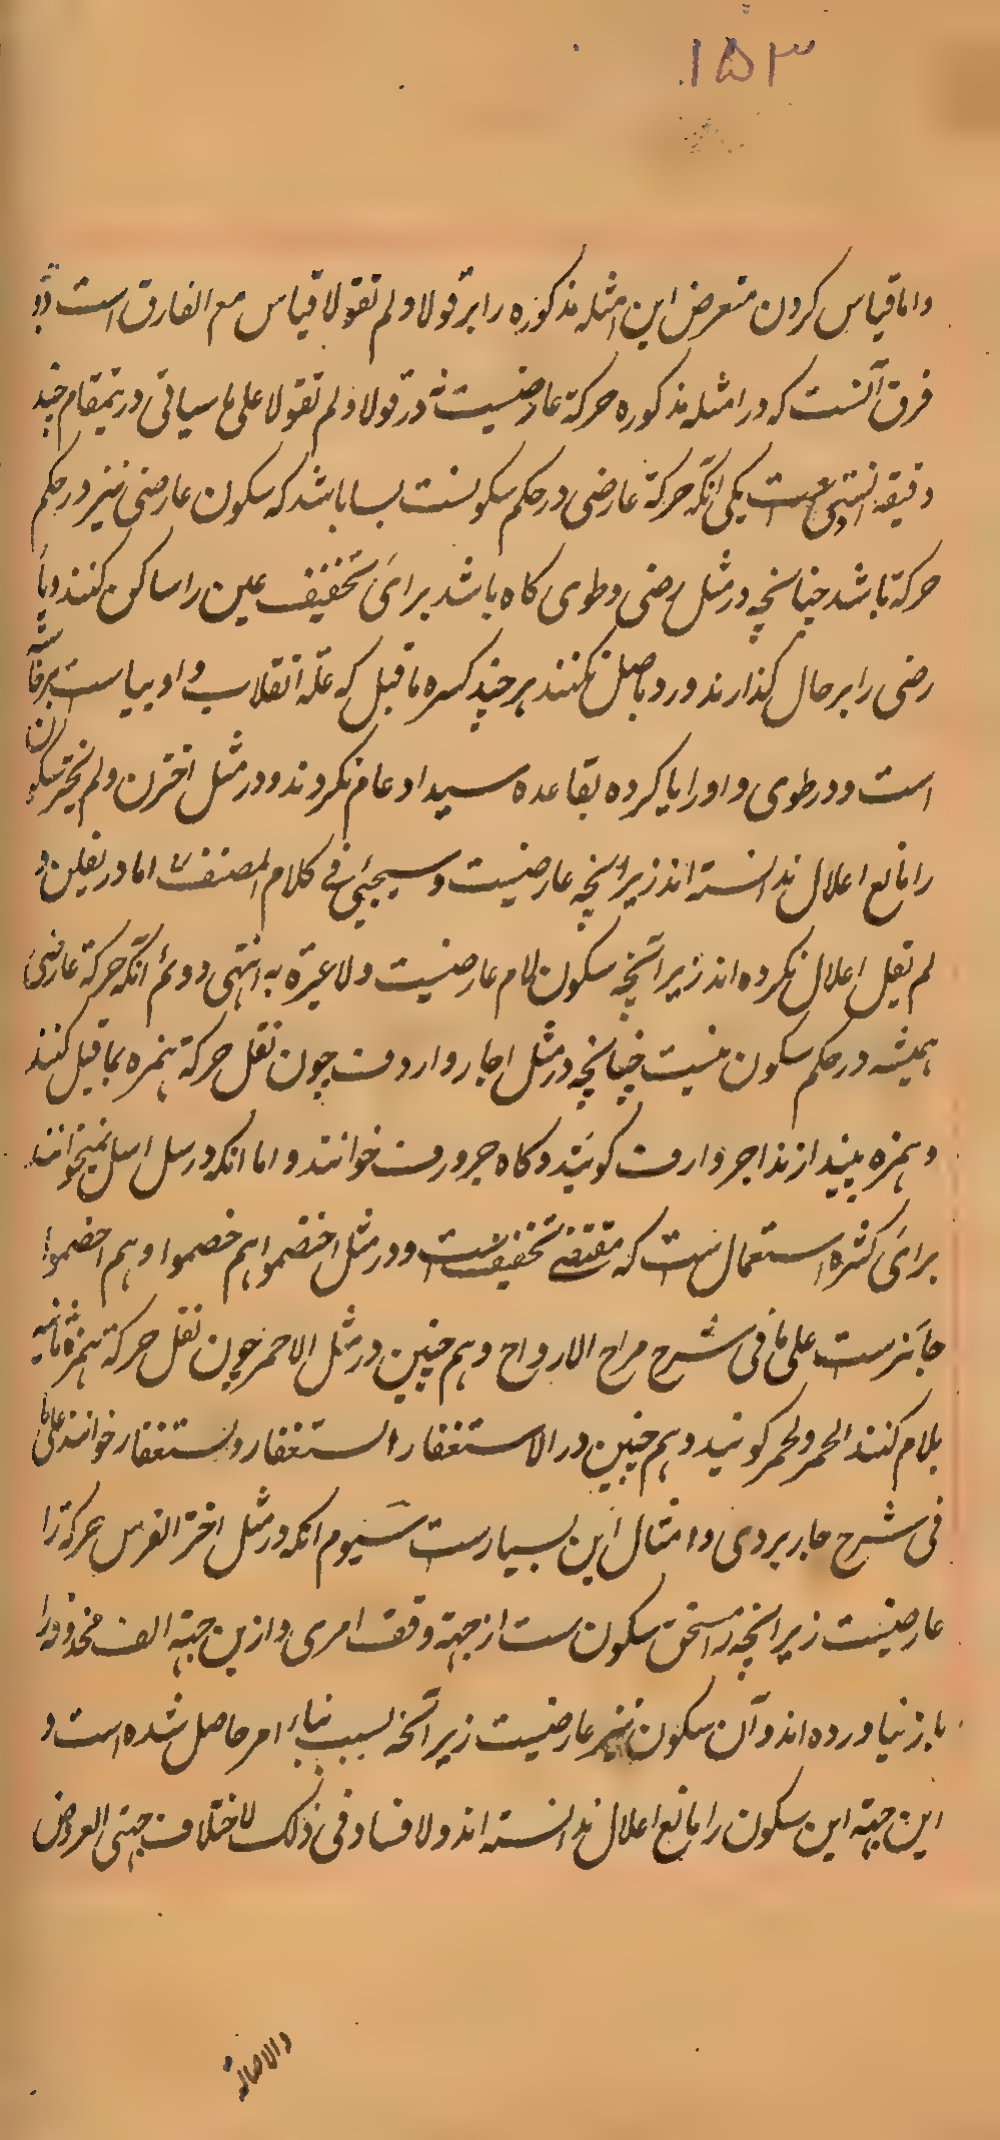 ۱۵۳
واما قیاس کردن متعرض این امثله مذکوره را بر قولا ولم تقولا قیاس مع الفارق است
فرق آنست که در امثله مذکوره حرکة عارضیست در قولا ولم تقولا علی ما سیاتی در ینمقام چند
دقیقه است یکی آنکه حرکة عارضی در حکم سکونست بسا باشد که سکون عارضی نیز در حکم
حرکة باشد چنانچه در مثل رضی وطوی کاه باشد برای تخفیف عین را ساکن کنند ویاء
رضی را بر حال کذارند ورد باصل نکنند هر چند کسره ما قبل که علة انقلاب واو بیاست برخاسته
است ودر طوی واو را یا کرده بقاعده سید ادغام نکردند ودر مثل اخترن ولم یخترن سکون
را مانع اعلال ندانسته اند زیرانچه عارضیست وسیجیٔ فی کلام المصنف اما در یقلن و
لم یقل اعلال نکرده اند زیرانچه سکون لام عارضیست ولا عبرة به انتهی دوئم آنکه حرکة عارضی
همیشه در حکم سکون نیست چنانچه در مثل اجار واروف چون نقل حرکة همزه بماقبل کنند
وهمزه بیندازند اجر وارف کویند وکاه جر ورف خوانند واما انکه در سل اسل نمیخوانند
برای کثرة استعمال است که مقتضی تخفیفست ودر مثل اختصموا هم خصموا وهم اخصموا
جائزست علی ما فی شرح مراح الارواح وهم چنین در مثل الاحمر چون نقل حرکة همزه ثانیه
بلام کنند الحمر ولحمر کویند وهم چنین در الاستغفار الستغفار ولستغفار خوانند علی ما
فی شرح جاربردی وامثال این بسیارست سیوم انکه در مثل اختر الفرس حرکة را
عارضیست زیرانچه را مستحق سکون ست از جهة وقف امری وازین جهة الف محذوفه را
باز نیاورده اند وآن سکون نیز عارضیست زیرانچه بسبب بناء امر حاصل شده است و
این جهة این سکون را مانع اعلال ندانسته اند ولا فساد فی ذلک لاختلاف جهتی العروض
والاصالة